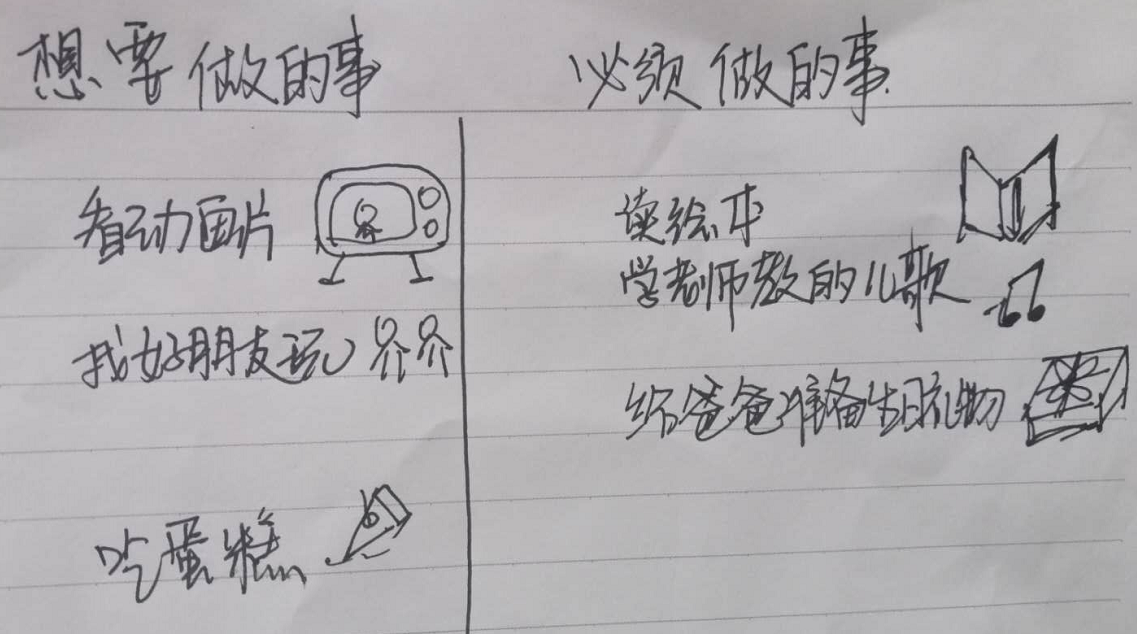 想要做的事
必须做的事.
看动画片
读绘本
学老师教的儿歌
找好朋友玩
给爸爸准备生日礼物
吃蛋糕